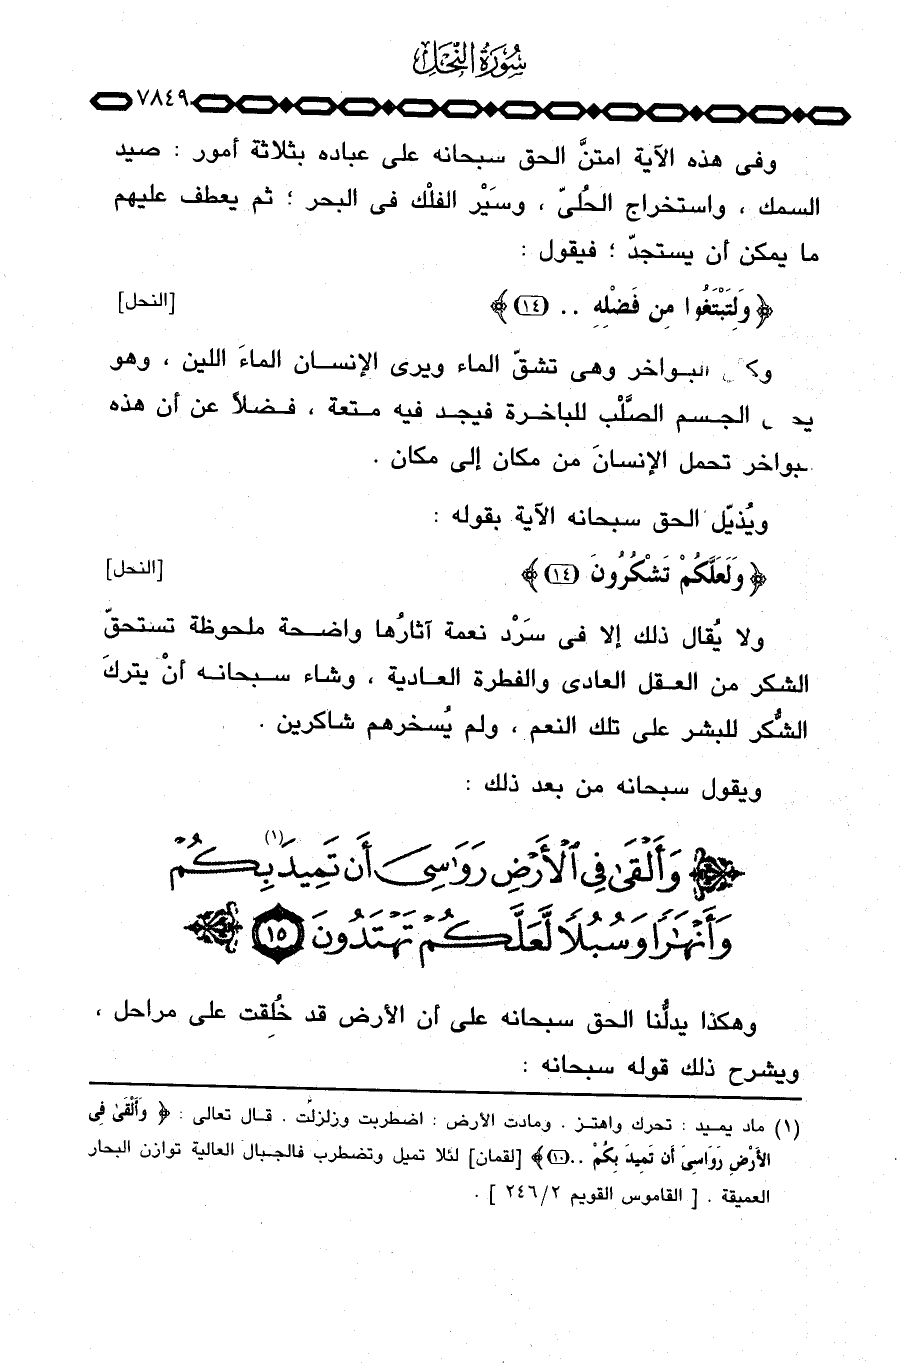 سُورَةُ النَّحْلِ
٧٨٤٩
وفى هذه الآية امتنَّ الحق سبحانه على عباده بثلاثة أمور : صيد
السمك ، واستخراج الحُلىّ ، وسَيْر الفلْك فى البحر ؛ ثم يعطف عليهم
ما يمكن أن يستجدّ ؛ فيقول :
﴿ وَلِتَبْتَغُوا مِن فَضْلِهِ .. (١٤) ﴾ [النحل]
البواخر وهى تشقّ الماء ويرى الإنسان الماءَ اللين ، وهو
الجسم الصَّلْب للباخرة فيجد فيه متعة ، فضلاً عن أن هذه
بواخر تحمل الإنسانَ من مكان إلى مكان .
ويُذيّل الحق سبحانه الآية بقوله :
﴿ وَلَعَلَّكُمْ تَشْكُرُونَ (١٤) ﴾ [النحل]
ولا يُقال ذلك إلا فى سَرْد نعمة آثارُها واضحة ملحوظة تستحقّ
الشكر من العقل العادى والفطرة العادية ، وشاء سبحانه أنْ يتركَ
الشُّكر للبشر على تلك النعم ، ولم يُسخرهم شاكرين .
ويقول سبحانه من بعد ذلك :
﴿ وَأَلْقَىٰ فِى ٱلْأَرْضِ رَوَٰسِىَ أَن تَمِيدَ (١) بِكُمْ
وَأَنْهَٰرًا وَسُبُلًا لَّعَلَّكُمْ تَهْتَدُونَ ١٥ ﴾
وهكذا يدلُّنا الحق سبحانه على أن الأرض قد خُلِقت على مراحل ،
ويشرح ذلك قوله سبحانه :
(١) ماد يميد : تحرك واهتز . ومادت الأرض : اضطربت وزلزلت . قال تعالى : ﴿ وَأَلْقَىٰ فِى
الأَرْضِ رَوَاسِىَ أَن تَمِيدَ بِكُمْ .. (١٠) ﴾ [لقمان] لئلا تميل وتضطرب فالجبال العالية توازن البحار
العميقة . [ القاموس القويم ٢٤٦/٢ ] .